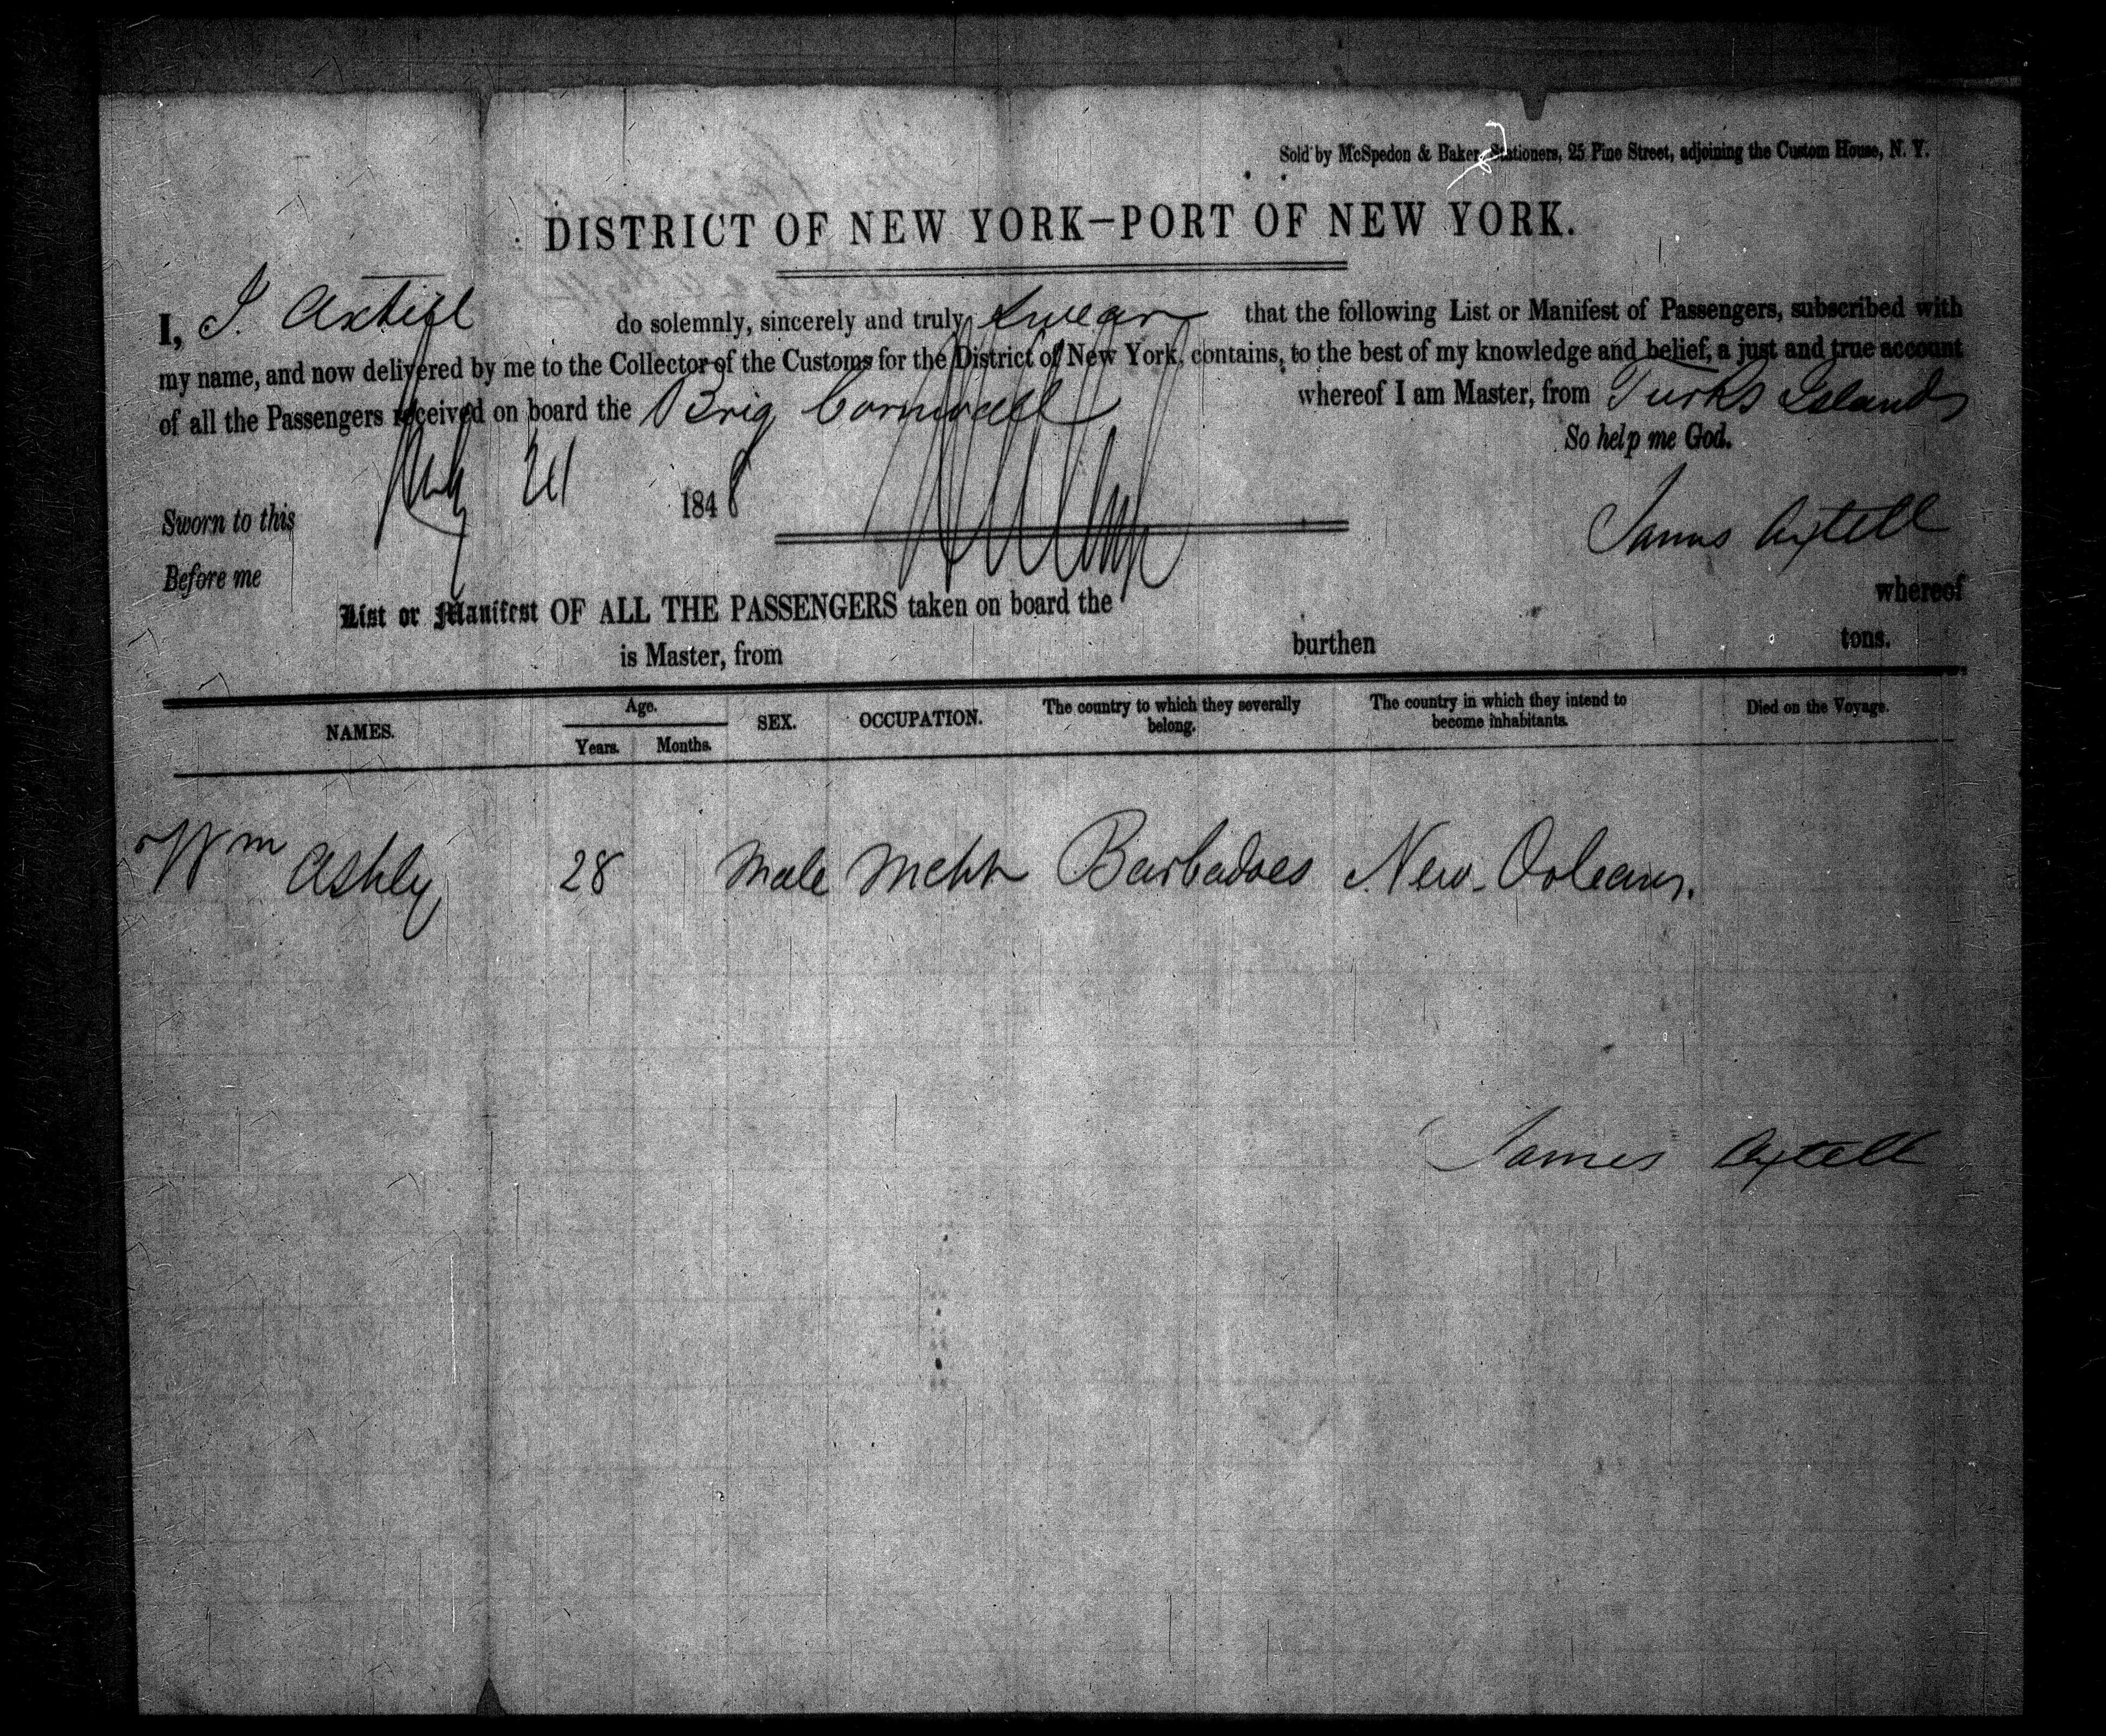 Sold by McSpedon & Baker, Stationers, 25 Pine Street, adjoining the Custom House, N. Y.
DISTRICT OF NEW YORK—PORT OF NEW YORK.
I, J. Axtill do solemnly, sincerely and truly swear that the following List or Manifest of Passengers, subscribed with
my name, and now delivered by me to the Collector of the Customs for the District of New York, contains, to the best of my knowledge and belief, a just and true account
of all the Passengers received on board the Brig Cornwall whereof I am Master, from Turks Islands
So help me God.
Sworn to this 1848
James Axtell
Before me
List or Manifest OF ALL THE PASSENGERS taken on board the whereof
is Master, from burthen tons.
NAMES. Age. Years. Months. SEX. OCCUPATION. The country to which they severally belong. The country in which they intend to become inhabitants. Died on the Voyage.
Wm Ashly 28 Male Mcht Barbadoes New-Orleans.
James Axtell